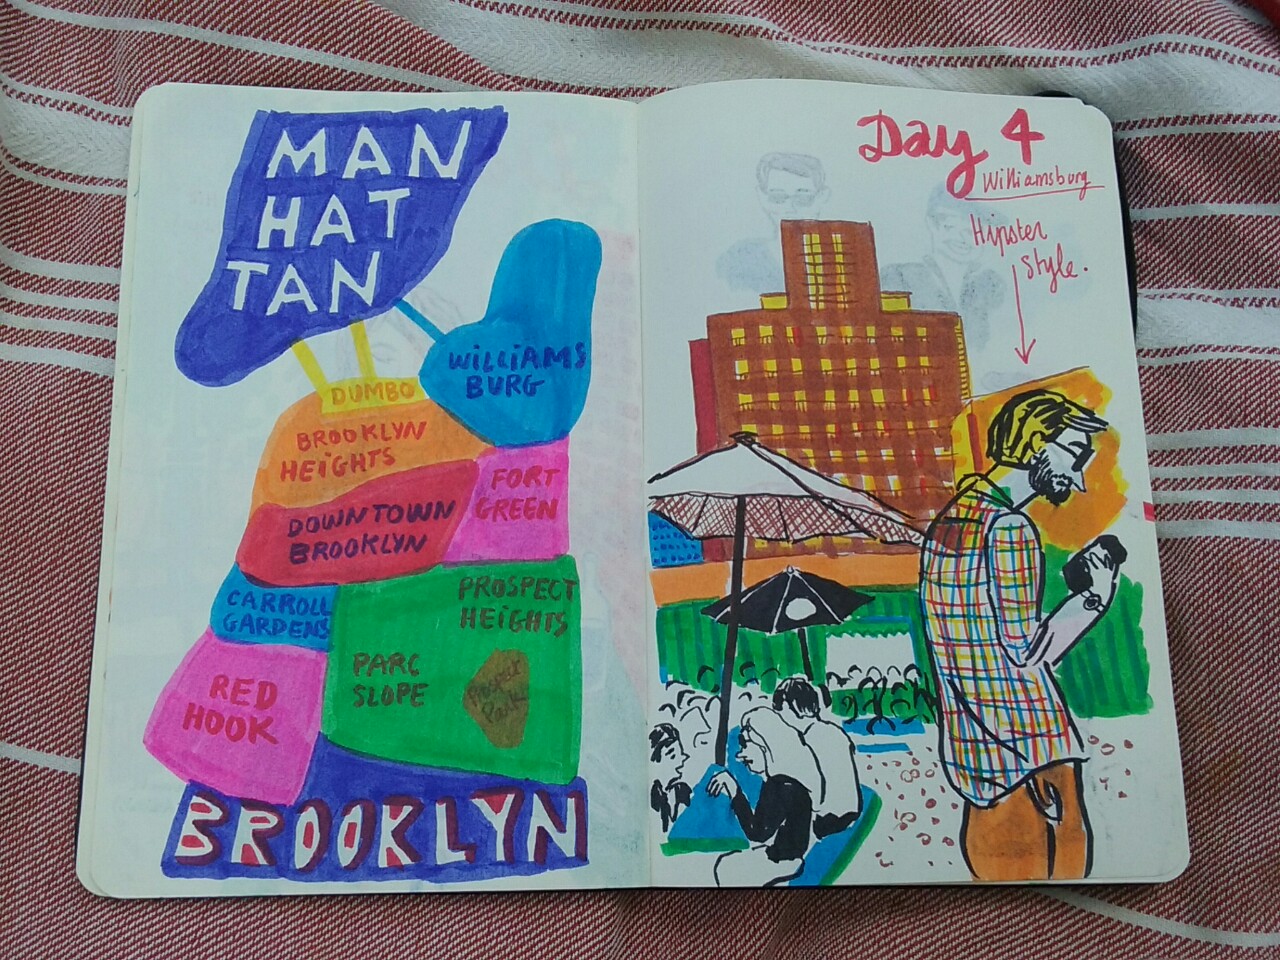 MAN
HAT
TAN
WiLLiAMS
BURG
DUMBO
BROOKLYN
HEiGHTS
FORT
GREEN
DOWNTOWN
BROOKLYN
CARROLL
GARDENS
PROSPECT
HEiGHTS
PARC
SLOPE
Prospect
Park
RED
HOOK
BROOKLYN
Day 4
Williamsburg
Hipster
Style.